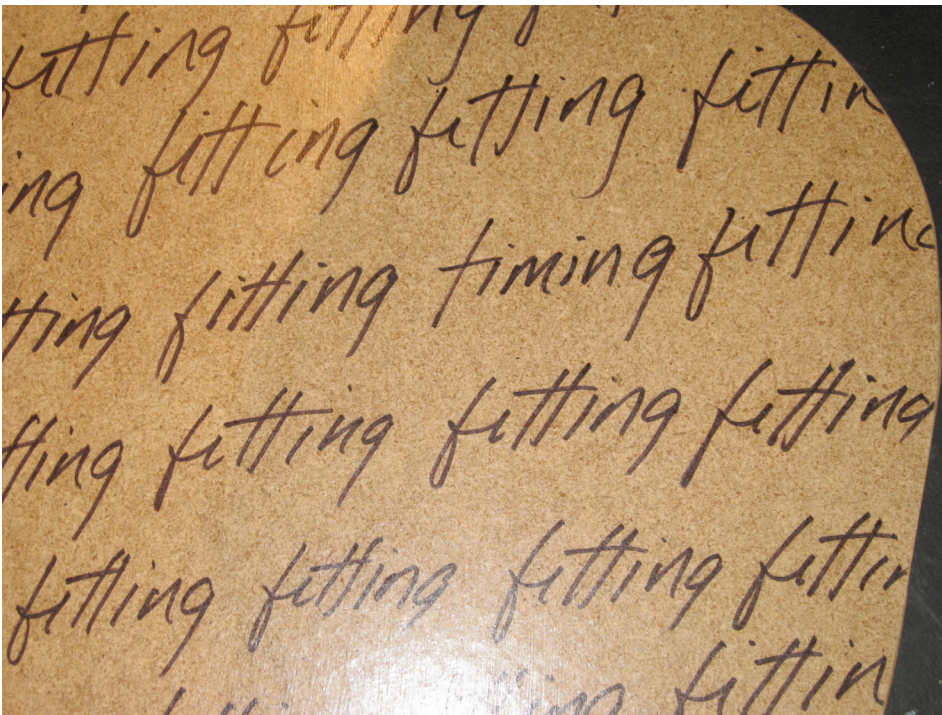 fitting fitting
fitting fitting fittin
ing fitting timing fitting
tting fitting fitting fitting
tting fitting fitting fitting fittin
fitting fittin